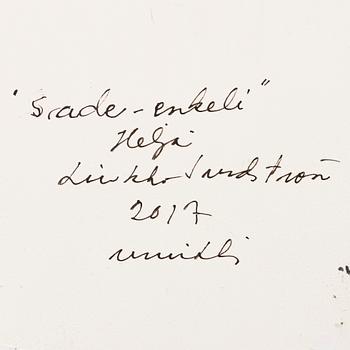 "Sade-enkeli"
Helja
Liukko-Sundström
2017
uniikki